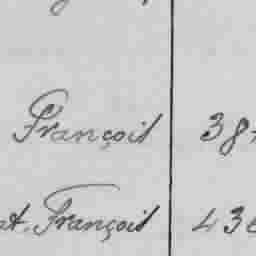 François 38
at. François 43